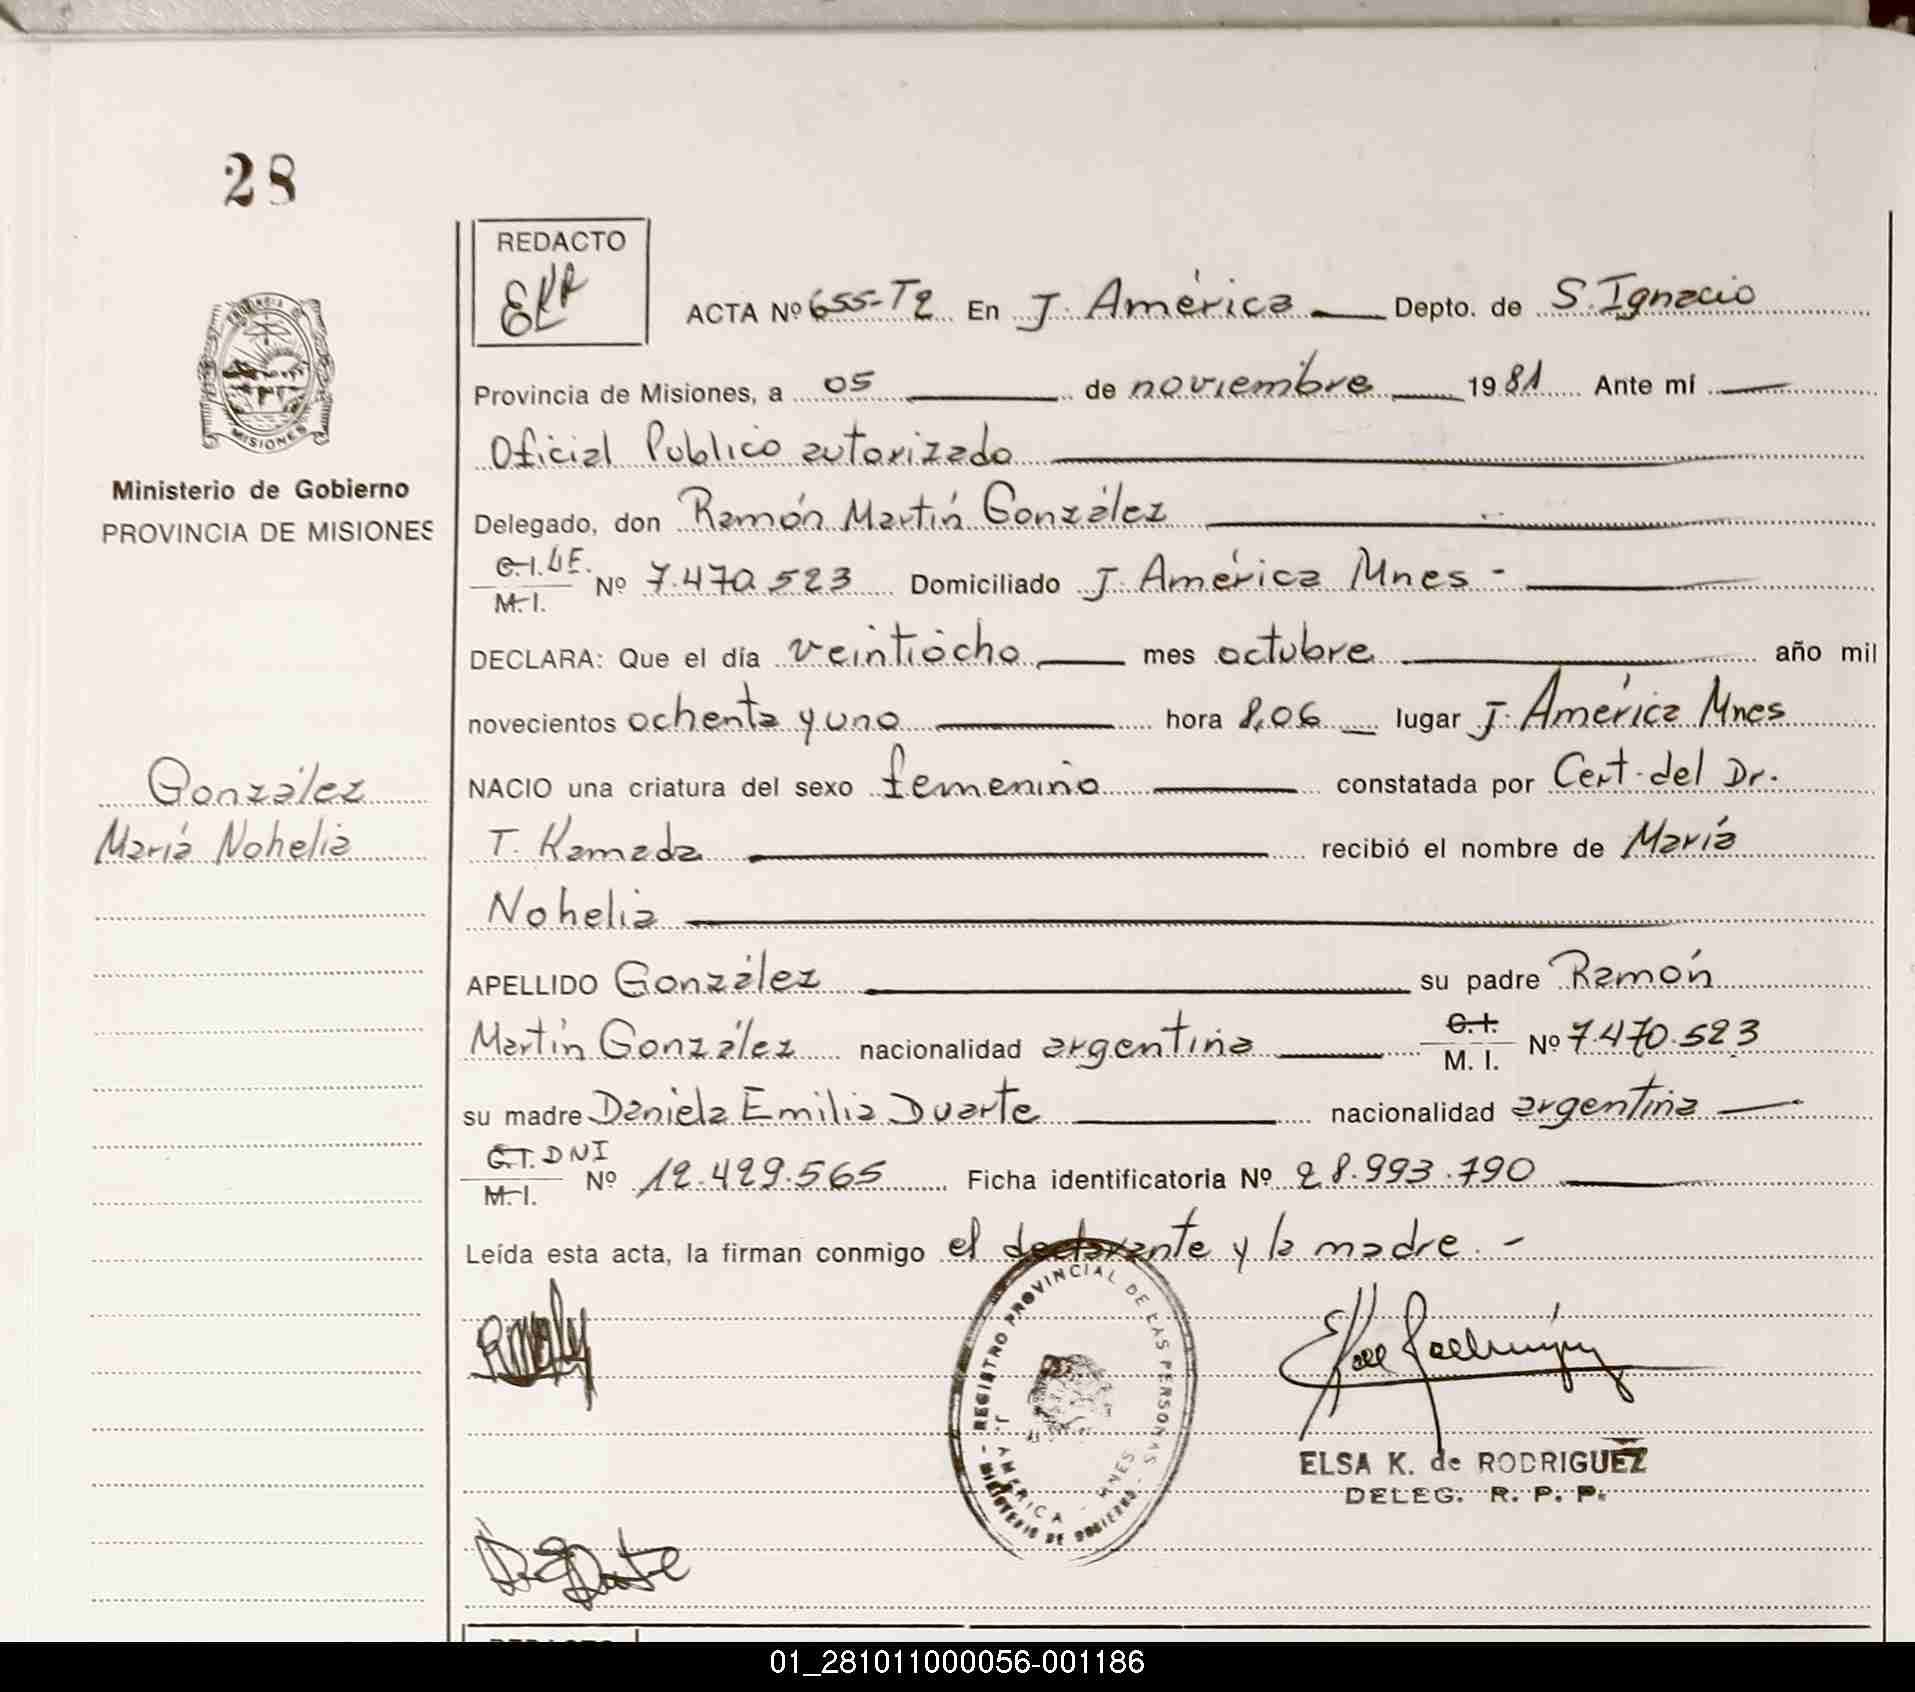 28
REDACTO
EKR
ACTA Nº 655-T2 En J. América Depto. de S. Ignacio
Provincia de Misiones, a 05 de noviembre 1981 Ante mí
Oficial Publico autorizado
Delegado, don Ramón Martín González
C.I. LE. M.I. Nº 7.470.523 Domiciliado J. América Mnes -
DECLARA: Que el día veintiocho mes octubre año mil
novecientos ochenta y uno hora 8,06 lugar J. América Mnes
NACIO una criatura del sexo femenino constatada por Cert. del Dr.
T. Kamada recibió el nombre de María
Nohelia
APELLIDO González su padre Ramón
Martín González nacionalidad argentina C.I. M.I. Nº 7.470.523
su madre Daniela Emilia Duarte nacionalidad argentina
C.I. DNI M.I. Nº 12.429.565 Ficha identificatoria Nº 28.993.790
Leída esta acta, la firman conmigo el declarante y la madre. -
PROVINCIA DE
MISIONES
Ministerio de Gobierno
PROVINCIA DE MISIONES
González
María Nohelia
- REGISTRO PROVINCIAL DE LAS PERSONAS -
J. AMERICA - MNES
MINISTERIO DE GOBIERNO
ELSA K. de RODRIGUEZ
DELEG. R. P. P.
REDACTO
01_281011000056-001186